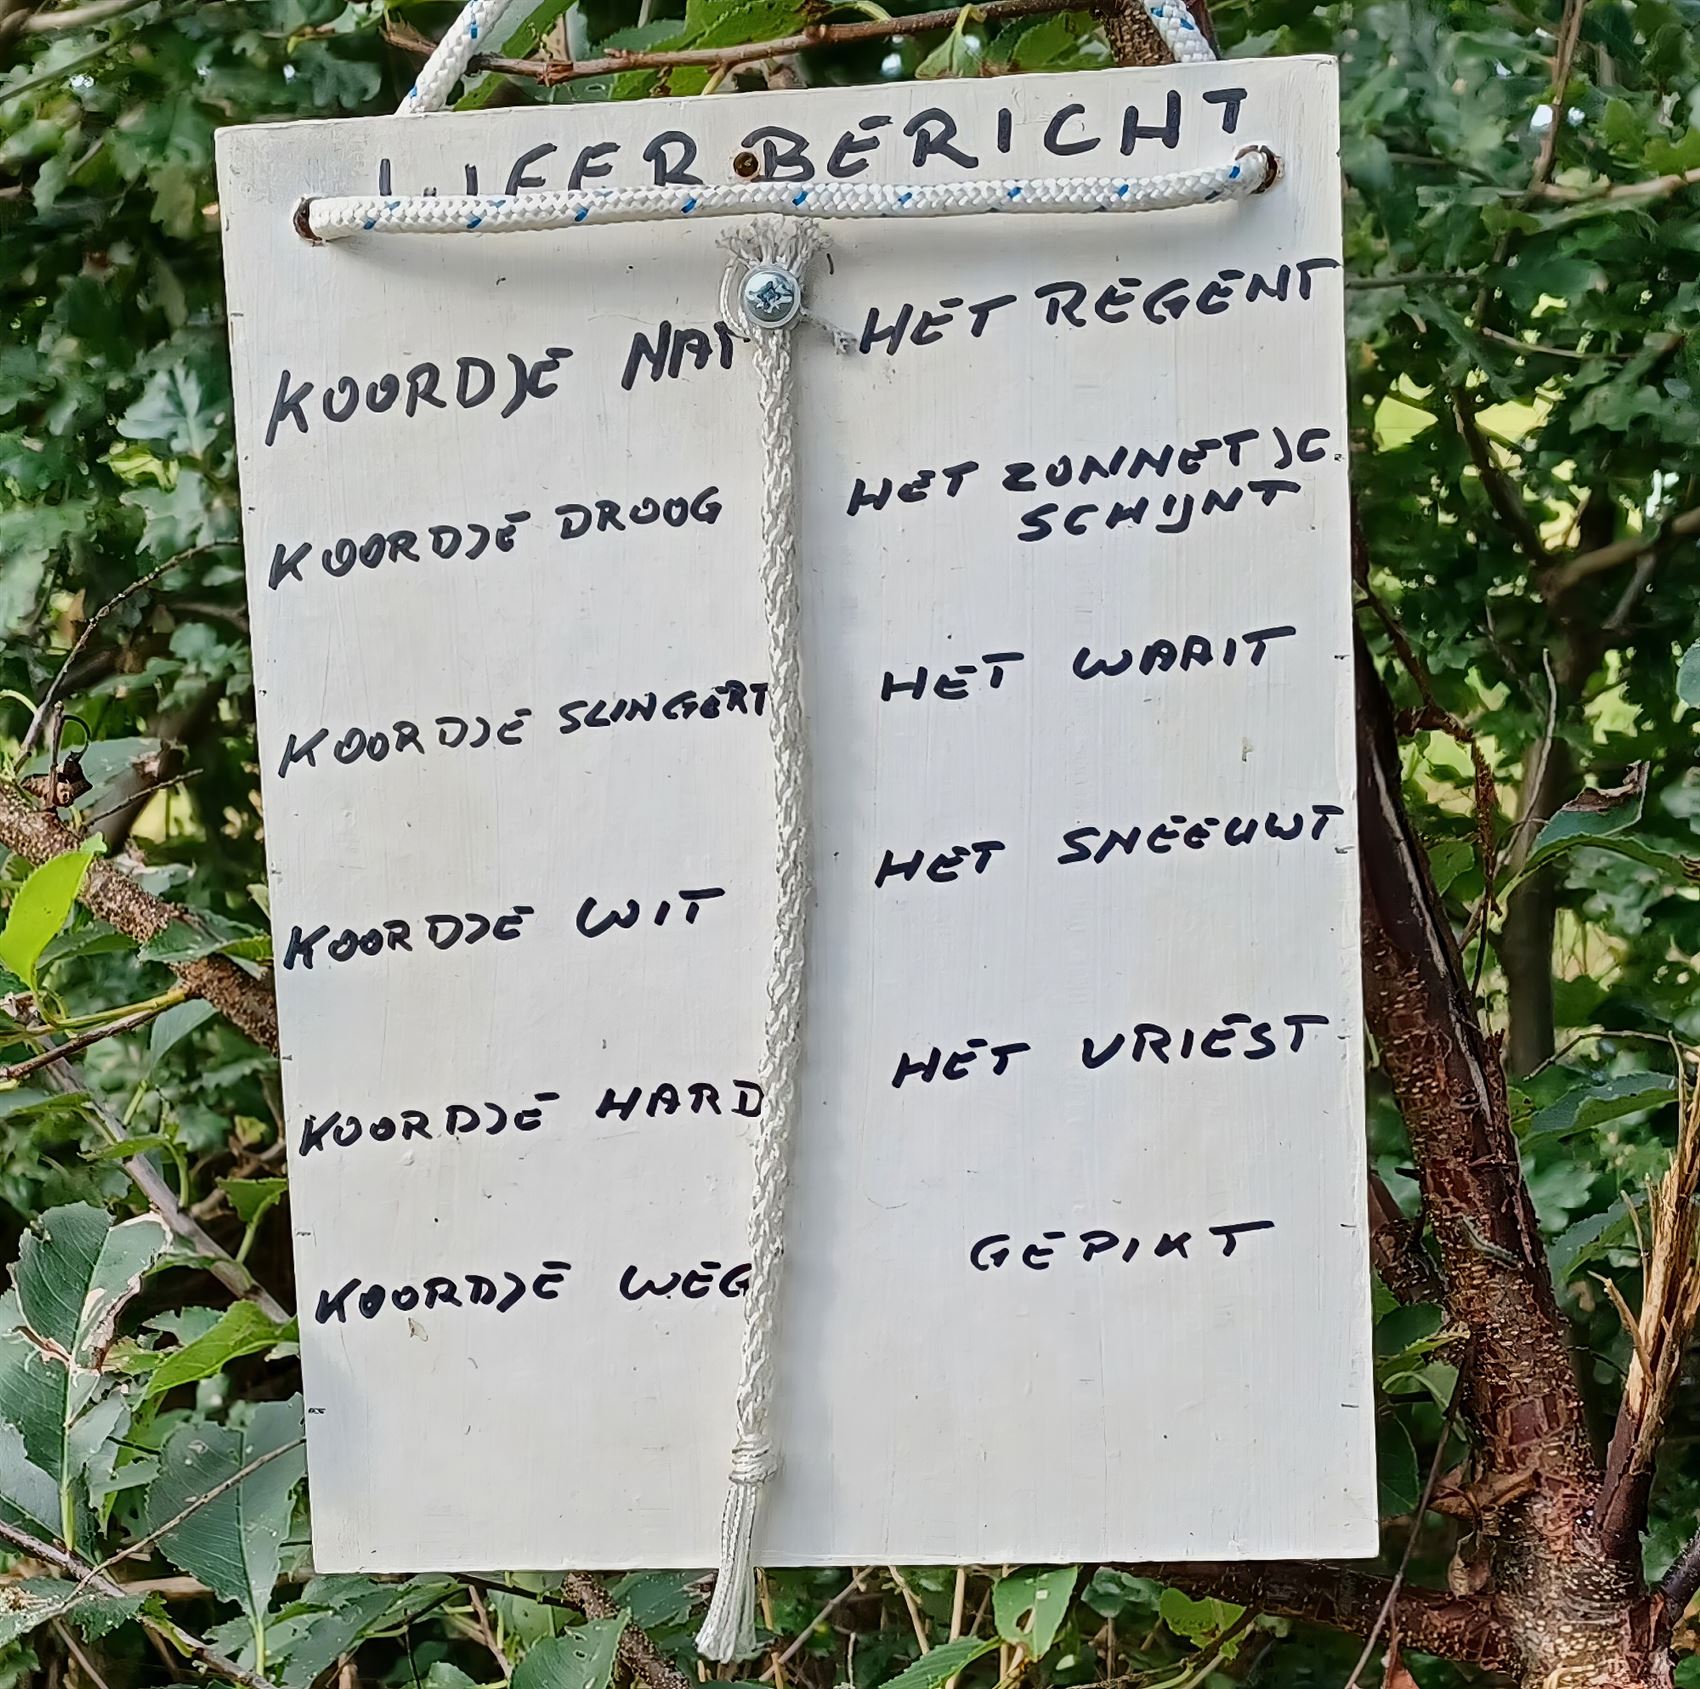 WEERBERICHT
KOORDJE NAT HET REGENT
KOORDJE DROOG HET ZONNETJE
SCHIJNT
KOORDJE SLINGERT HET WAAIT
KOORDJE WIT HET SNEEUWT
KOORDJE HARD HET VRIEST
KOORDJE WEG GEPIKT